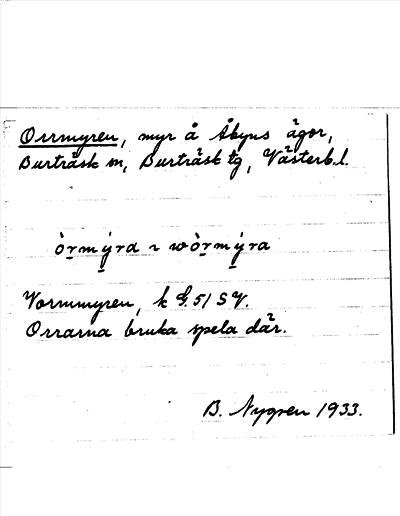 Orrmyren, myr å Åbyns ägor,
Burträsk sn, Burträsk tg, Västerb.l.
òrmýra ~ wòrmýra
Vormmyren, k 51 SV.
Orrarna bruka spela där.
B. Nygren 1933.